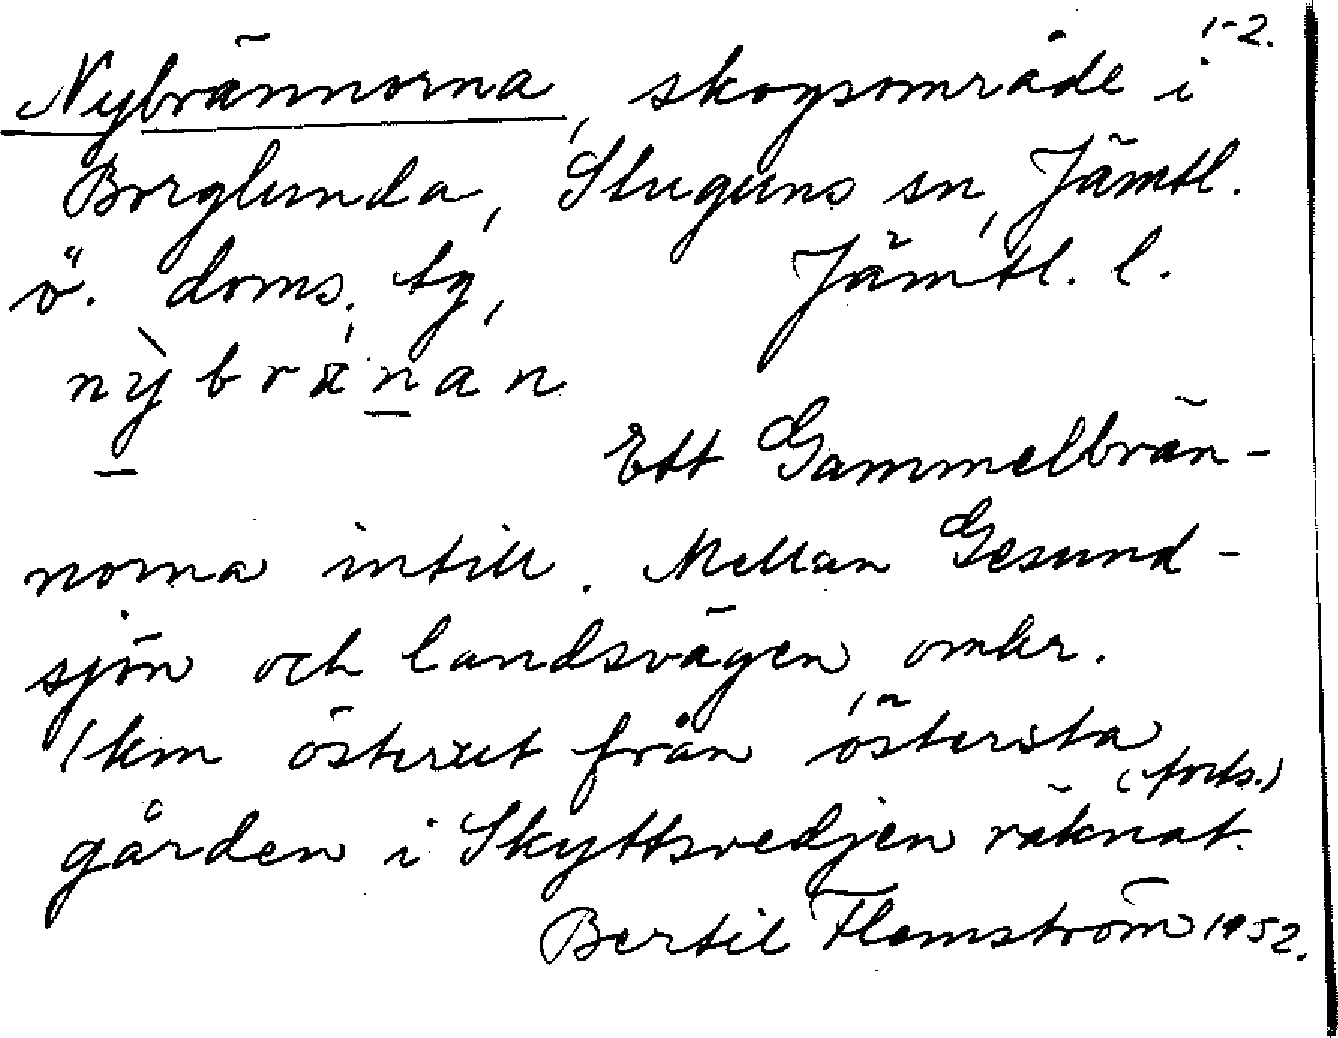 1-2.
Nybrännorna, skogsområde i
Borglunda, Stuguns sn, Jämtl.
ö. doms. tg, Jämtl. l.
nỳbränan
Ett Gammelbrän-
norna intill. Mellan Gesund-
sjön och landsvägen omkr.
1 km österut från östersta
gården i Skyttsvedjen räknat.
(forts.)
Bertil Flemström 1952.